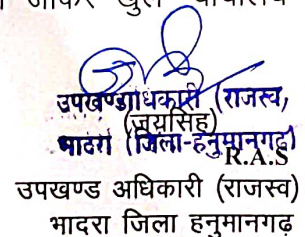 जाकर खुले न्यायालय
उपखण्डाधिकारी (राजस्व,
(जयसिंह)
भादरा (जिला-हनुमानगढ़)
R.A.S
उपखण्ड अधिकारी (राजस्व)
भादरा जिला हनुमानगढ़